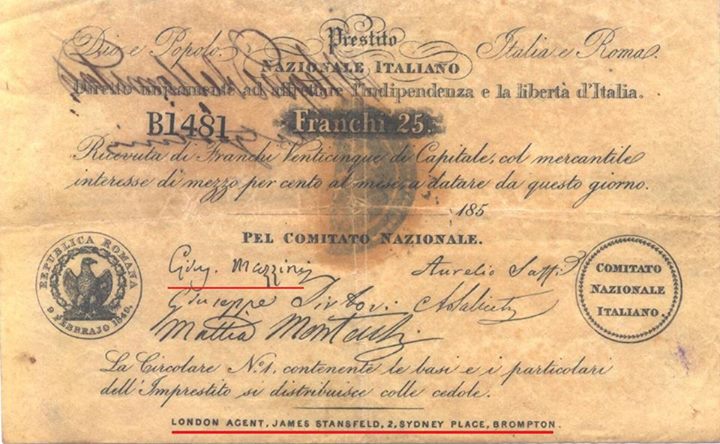 Dio e Popolo. Prestito Italia e Roma.
NAZIONALE ITALIANO
Diretto unicamente ad affrettare l'indipendenza e la libertà d'Italia.
B1481 Franchi 25.
Ricevuta di Franchi Venticinque di Capitale, col mercantile
interesse di mezzo per cento al mese, a datare da questo giorno.
185
PEL COMITATO NAZIONALE.
REPUBLICA ROMANA
9 FEBBRAJO 1849.
Gius. Mazzini Aurelio Saffi
Giuseppe Sirtori A. Saliceti
Mattia Montecchi
COMITATO
NAZIONALE
ITALIANO,
La Circolare No. 1, contenente le basi e i particolari
dell'Imprestito si distribuisce colle cedole.
LONDON AGENT, JAMES STANSFELD, 2, SYDNEY PLACE, BROMPTON.